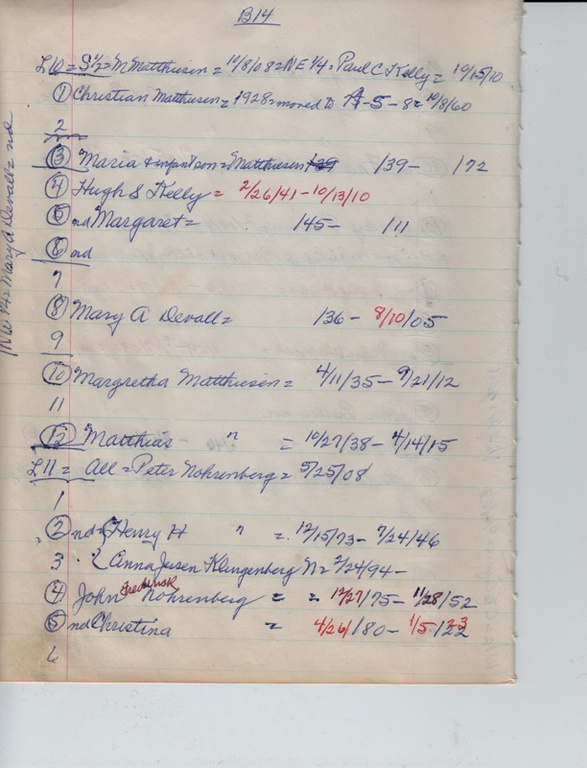 B14
L10 = S 1/2 = M Matthiesen = 10/8/08 = NE 1/4 = Paul C Kelly = 10/15/10
① Christian Matthiesen = 1928 = moved to A-5-8 = 10/8/60
2
③ Maria & infant son = Matthiesen /39- /72
④ Hugh S Kelly = 2/26/41 - 10/13/10
⑤ nd Margaret = /45- /11
⑥ nd
7
⑧ Mary A Devall = /36- 8/10/05
9
⑩ Margretha Matthiesen = 4/11/35 - 9/21/12
11
⑫ Matthias " = 10/27/38 - 4/14/15
L11 = All = Peter Nohrenberg = 5/25/08
1
② nd Henry H " = 12/15/73 - 7/24/46
3 Anna Jessen Klingenberg N = 2/24/94-
④ John Frederick Nohrenberg = = 12/27/75 - 11/28/52
⑤ nd Christina = 4/26/80 - 1/5/
6
NW 1/4 = Mary A Devall = nd